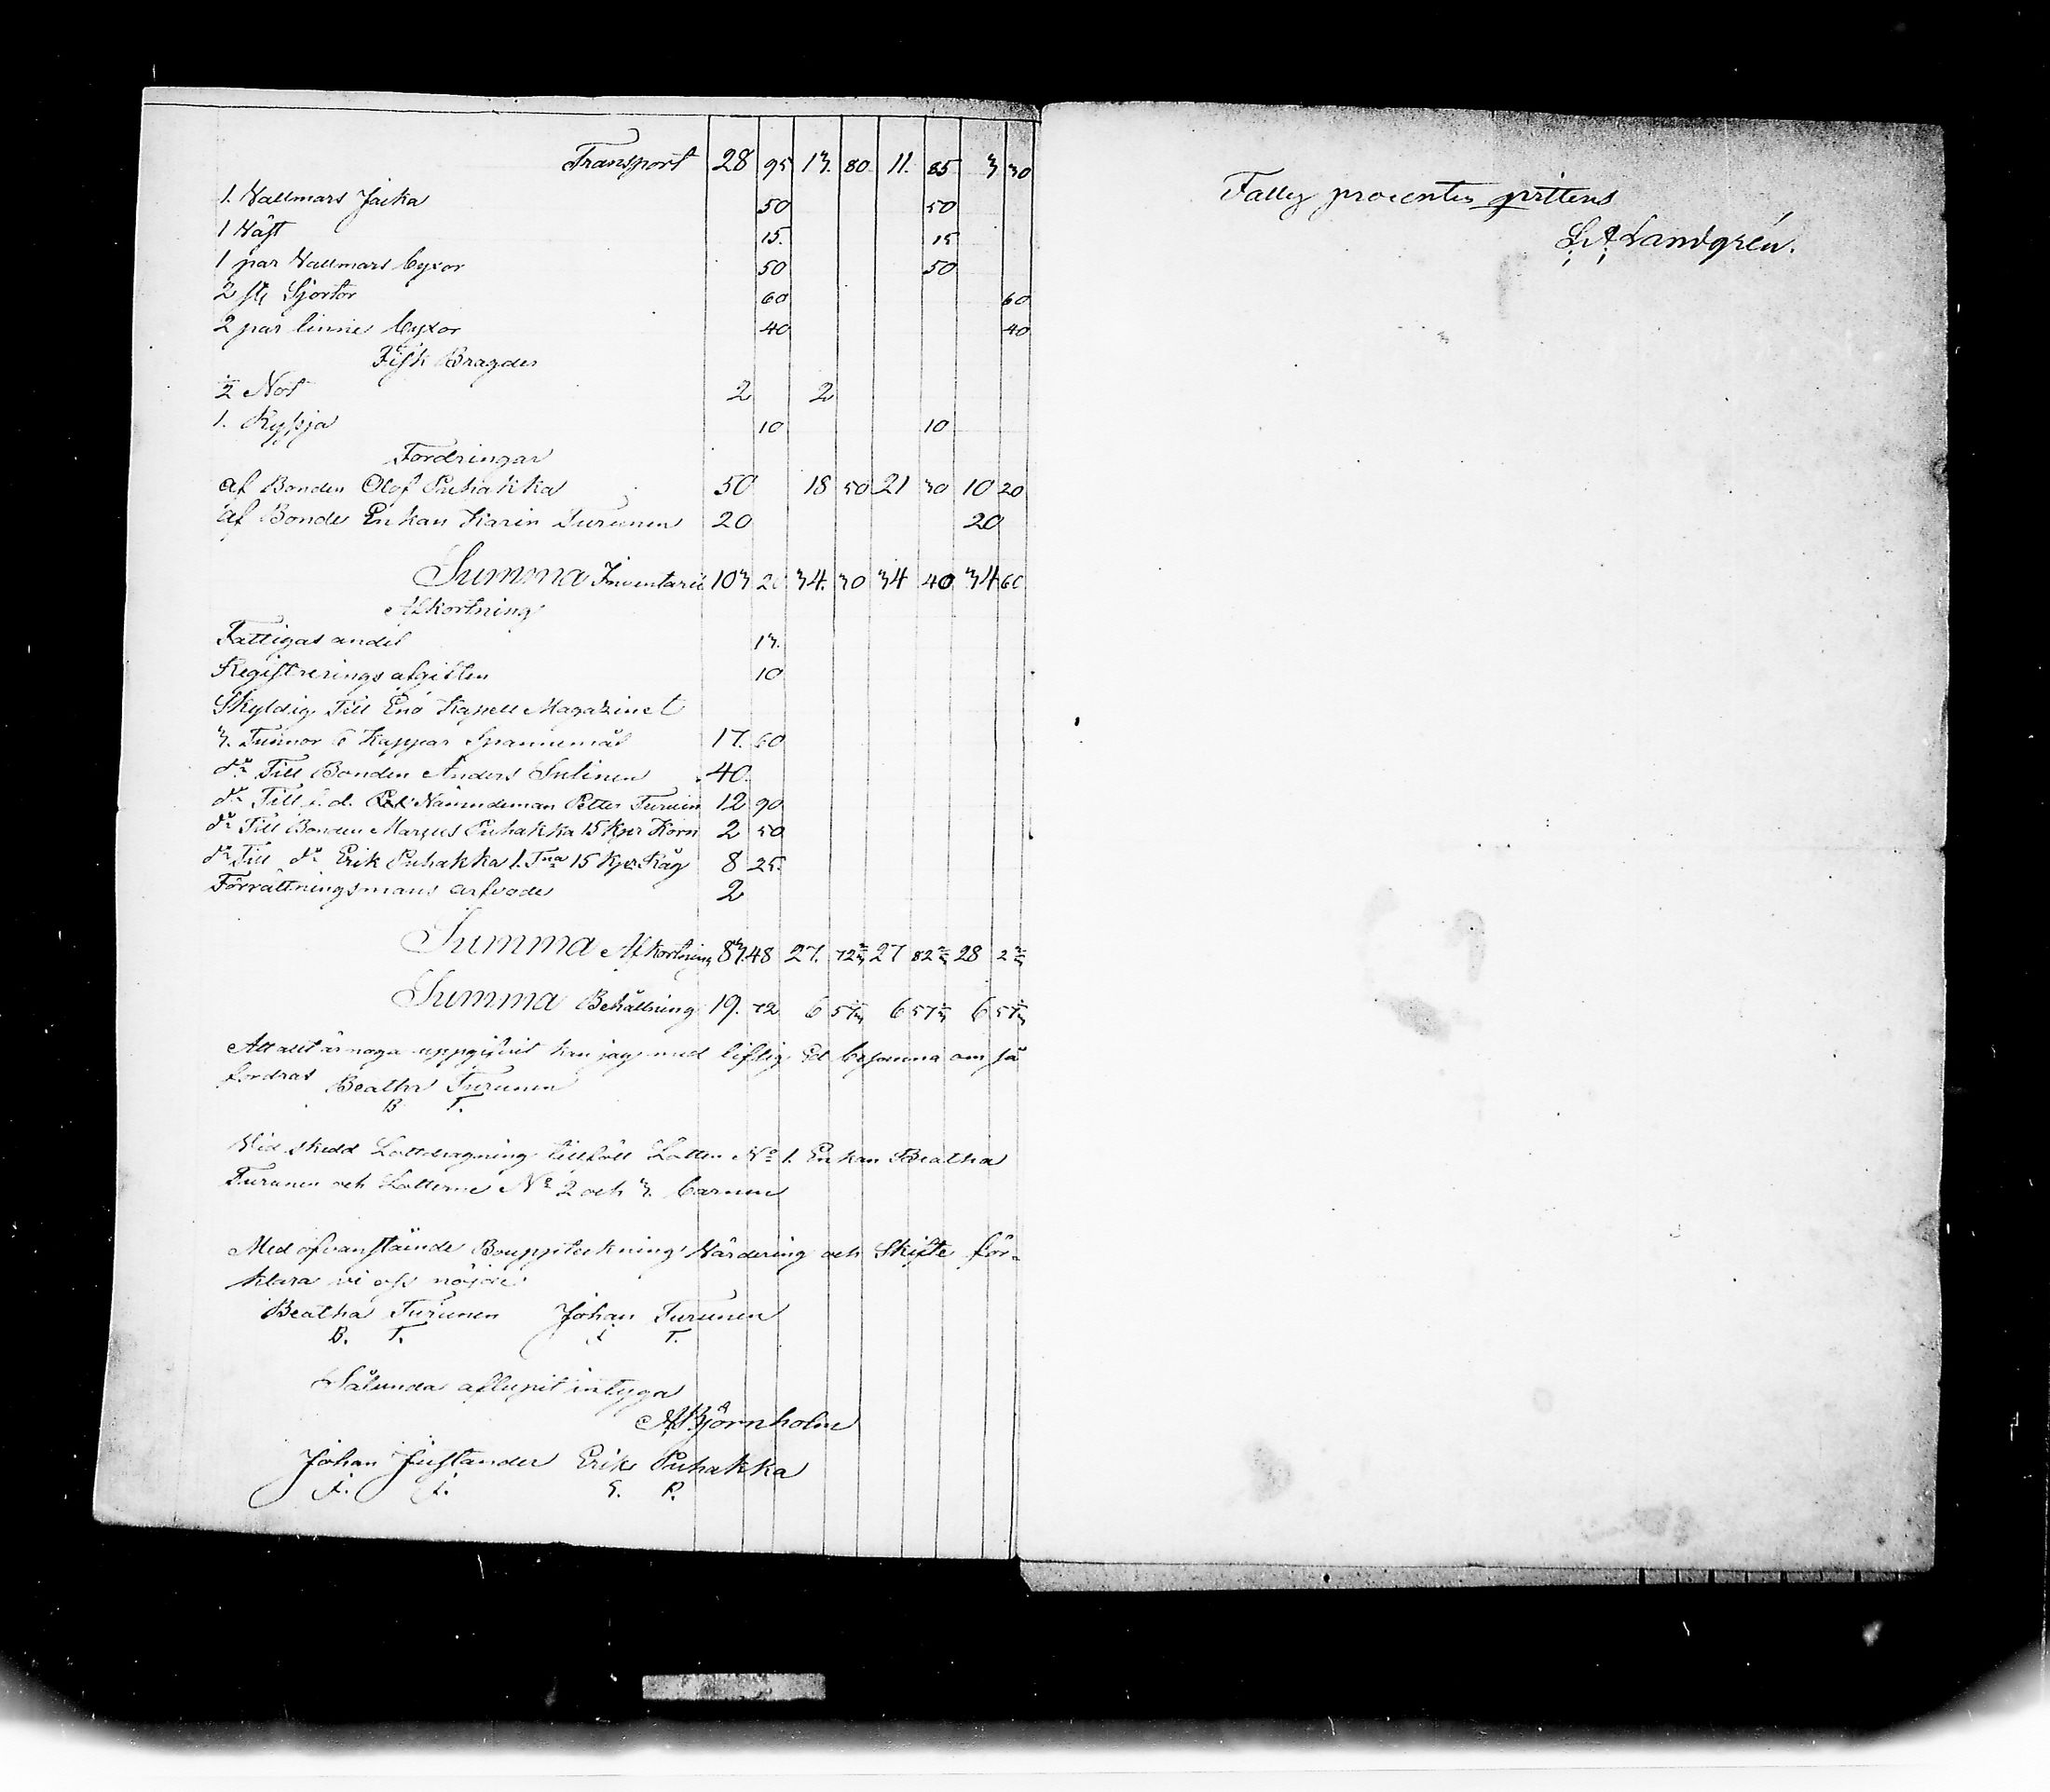 Transport 28 95 13. 80 11. 85 3 30
1. Wallmars Jacka 50 50
1 Wäst 15. 15
1 par Wallmars byxor 50 50
2 st Sjortor 60 60
2 par linne byxor 40 40
Fisk Bragder
½ Not 2 2
1. Ryssja 10 10
Fordringar
af Bonden Olof Puhakka 50 18 50 21 30 10 20
af Bonde Enkan Karin Turunen 20 20
Summa Inventarii 103 20 34. 30 34 40 34 60
Afkortning
Fattigas andel 13.
Registrerings afgiften 10
Skyldig Till Enó Kapell Magazinet
3. Tunnor 6 Kappar Spannemål 17. 60
d:o Till Bonden Anders Sutinen 40.
d:o Till f. d. Nämndeman Petter Turuin 12 90
d:o Till Bonden Marcus Puhakka 15 kpr Korn 2 50
d:o Till d:o Erik Puhakka 1. Tna 15 Kpr Råg 8 25.
Förrättningsmans arfvode 2
Summa Afkortning 83. 48 27. 72⅔ 27 82⅔ 28 2⅔
Summa Behållning 19. 72 6 57⅓ 6 57⅓ 6 57⅓
Att alt är noga uppgifvit kan jag med liflig Ed besanna om så
fordras Beatha Turunen
B T.
Vid skedd Lottdragning tillföll Lotten No 1. Enkan Beatha
Turunen och Lotterne No 2 och 3. barnen
Med ofvanstående Bouppteckning Värdering och Skifte för-
klara vi oss nöjde
Beatha Turunen Johan Turunen
B. T. J T.
Sålunda aflupit intyga
A Björnholm
Johan Justander Erik Puhakka
J. J. E. P.
Fattig procenten qvitteras
L A Landgrén.